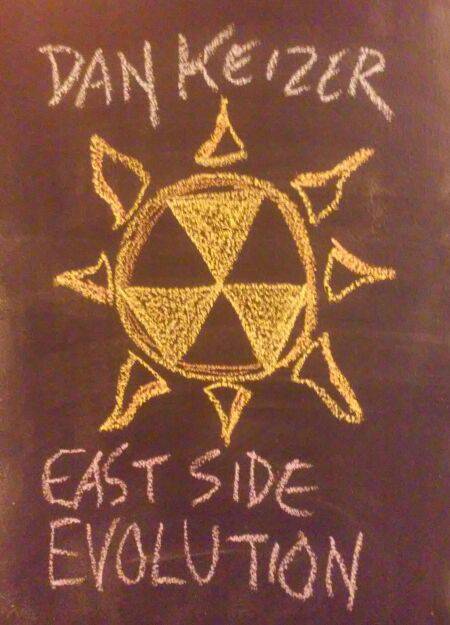 DAN KEIZER
EAST SIDE
EVOLUTION